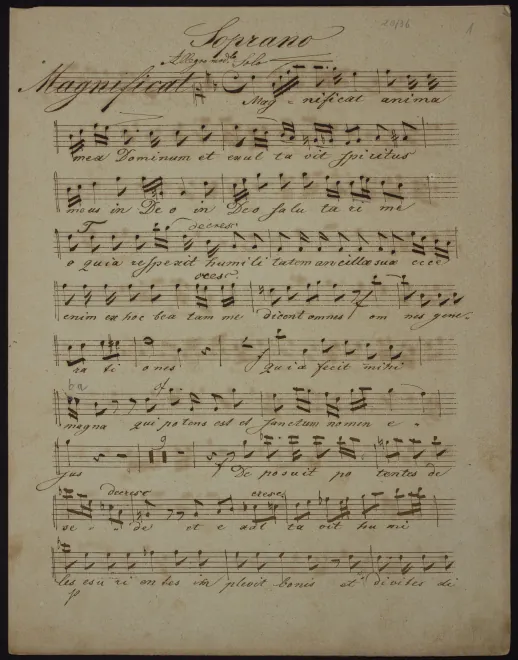 Soprano
1
Allegro mod. Solo
Magnificat
Mag - nificat anima
mea Dominum et exul ta vit Spiritus
meus in De o in Deo Salu ta ri me
decres
o quia respexit humili tatem ancillæ sua ecce
cres
enim ex hoc bea tam me dicent omnes om nes gene-
ra ti ones quia fecit mihi
magna qui potens est et Sanctum nomen e -
9
jus De posuit po tentes de
decres cres
se - de et exal ta vit hu mi
les esu ri entes im plevit bonis et divites di